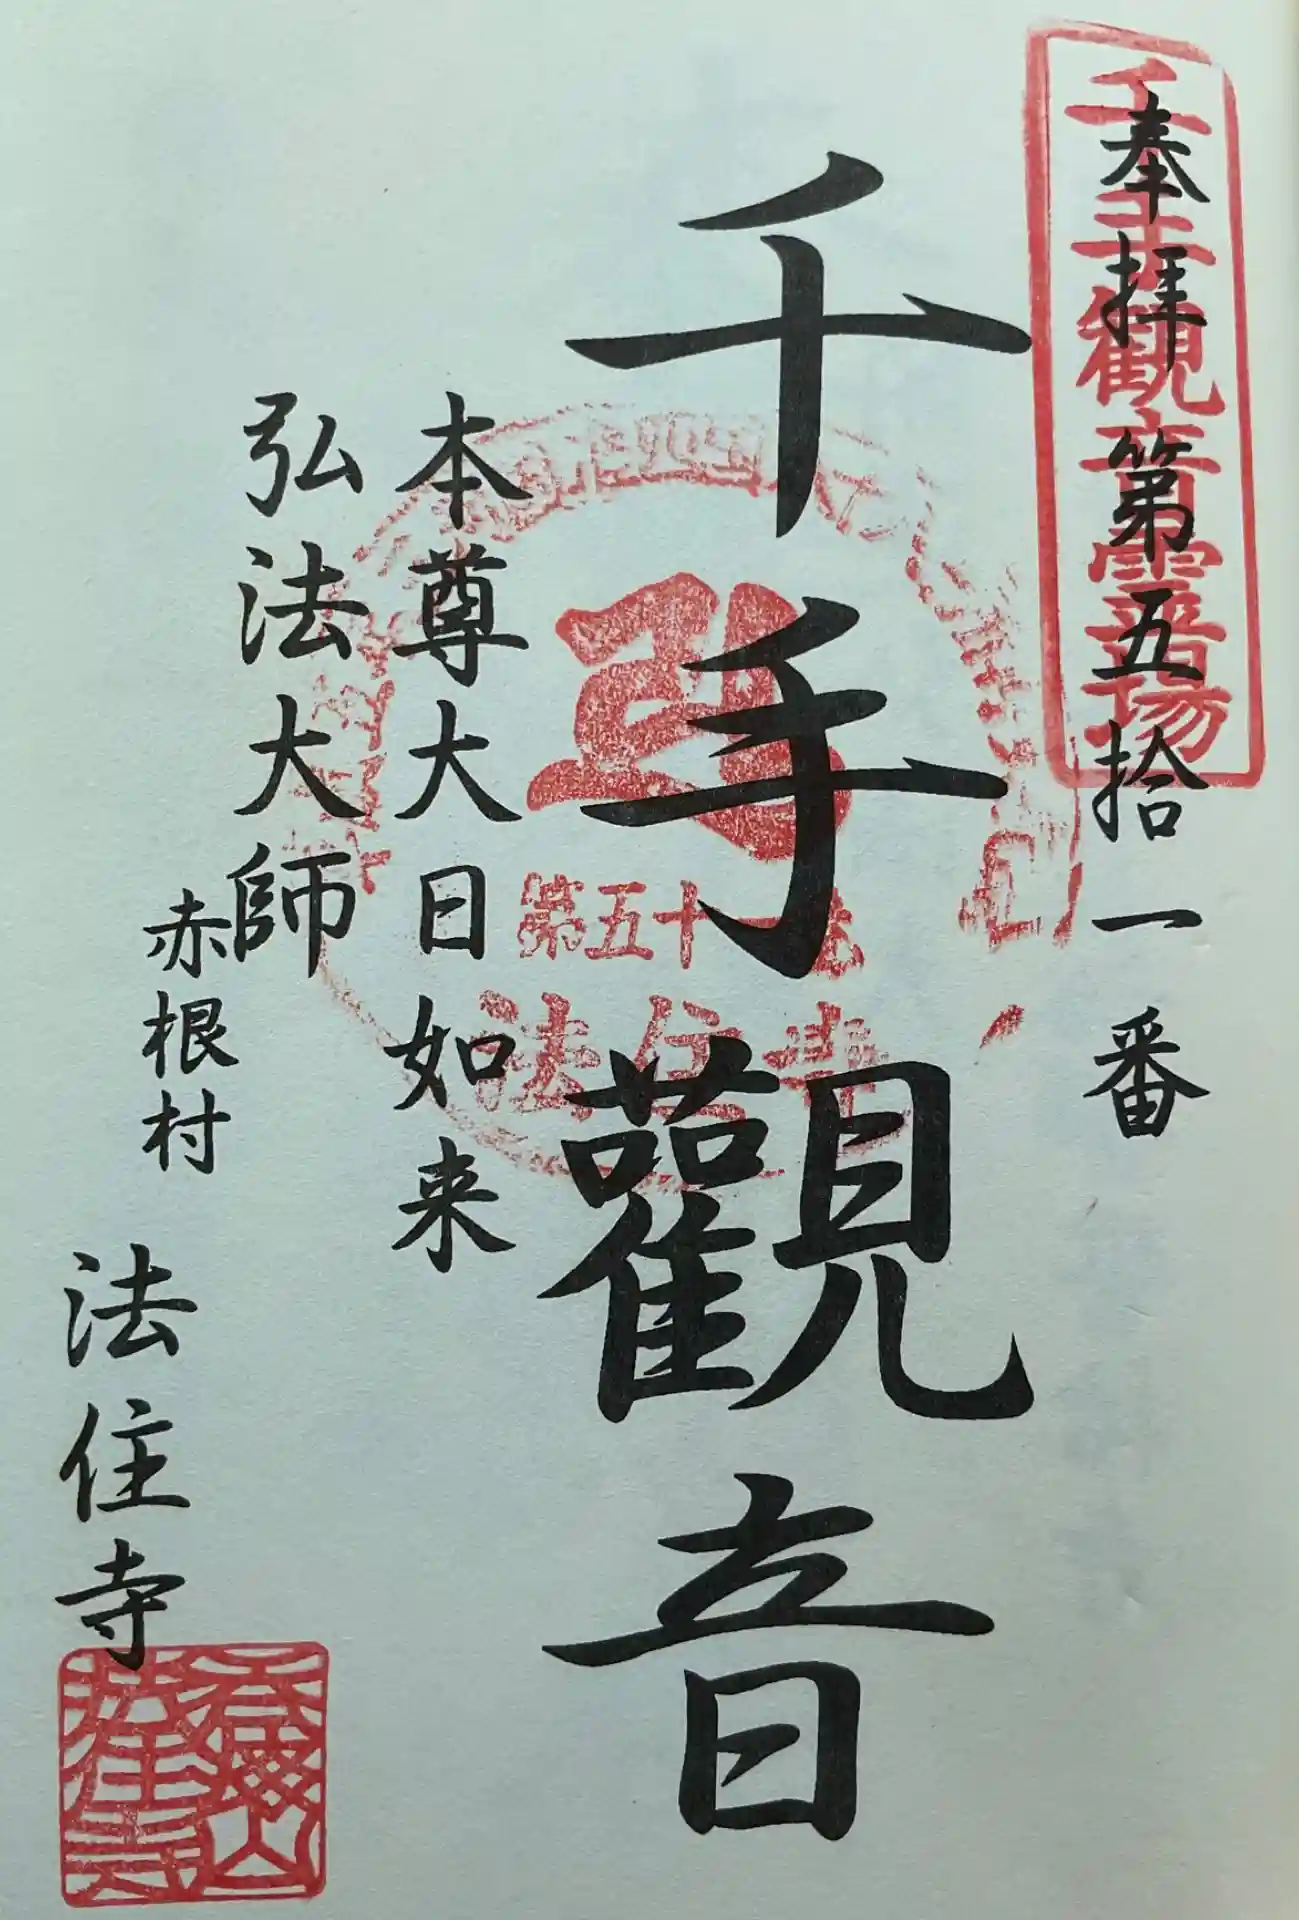 奉拝第五拾一番
千手觀音霊場
千手觀音
第五十一番
法住寺
本尊大日如来
弘法大師
赤根村
法住寺
法住寺